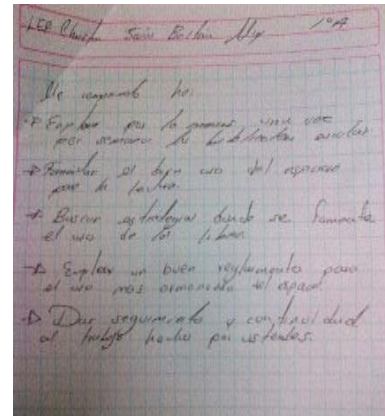 1° A
Me comprometo ha:
→ Emplear por lo menos una vez
por semana la biblioteca escolar.
→ Fomentar el buen uso del espacio
para la lectura.
→ Buscar estrategias donde se fomente
el uso de los libros.
→ Emplear un buen reglamento para
el uso mas armonico del espacio.
→ Dar seguimiento y continuidad
al trabajo hecho por ustedes.